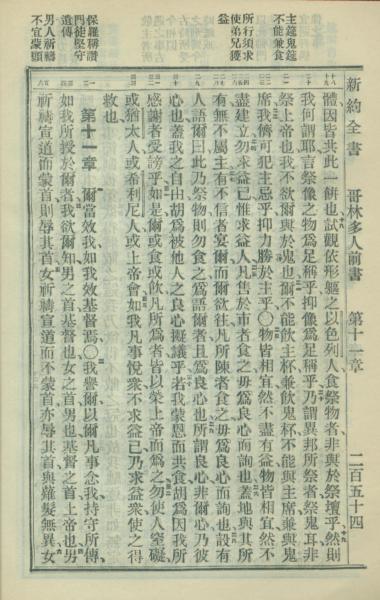 新約全書 哥林多人前書 第十一章 二百五十四
主筵鬼筵
不能兼食
所行須求
使弟兄獲
益
保羅稱讚
門徒堅守
遺傳
男人祈禱
不宜蒙頭
體因皆共此一餅也試觀依形軀之以色列人食祭物者非與於祭壇乎然則
我何謂耶言祭像之物為足稱乎抑像為足稱乎乃謂異邦所祭者祭鬼耳非
祭上帝也我不欲爾與於鬼也爾不能飲主杯兼飲鬼杯不能與主席兼與鬼
席我儕可犯主忌乎抑力勝於主乎〇物皆相宜然不盡有益物皆相宜然不
盡建立勿求益己惟求益人凡售於市者食之毋為良心而詢也蓋地與其所
有無不屬主有不信者宴爾而爾欲往凡所陳者食之毋為良心而詢也設有
人語爾曰此乃祭物則勿食之為語爾者且為良心也所謂良心非爾心乃彼
心也蓋我之自由胡為被他人之良心擬議乎若我蒙恩而共食胡為因我所
感謝者受謗乎如是爾或食或飲凡所為者皆以榮上帝而為之勿使人窒礙
或猶太人或希利尼人或上帝會如我凡事悅衆不求益己乃求益衆使之得
救也
第十一章 爾當效我如我效基督焉〇我譽爾以爾凡事念我持守所傳
如我所授於爾者我欲爾知男之首基督也女之首男也基督之首上帝也男
祈禱宣道而蒙首則辱其首女祈禱宣道而不蒙首亦辱其首與薙髮無異女